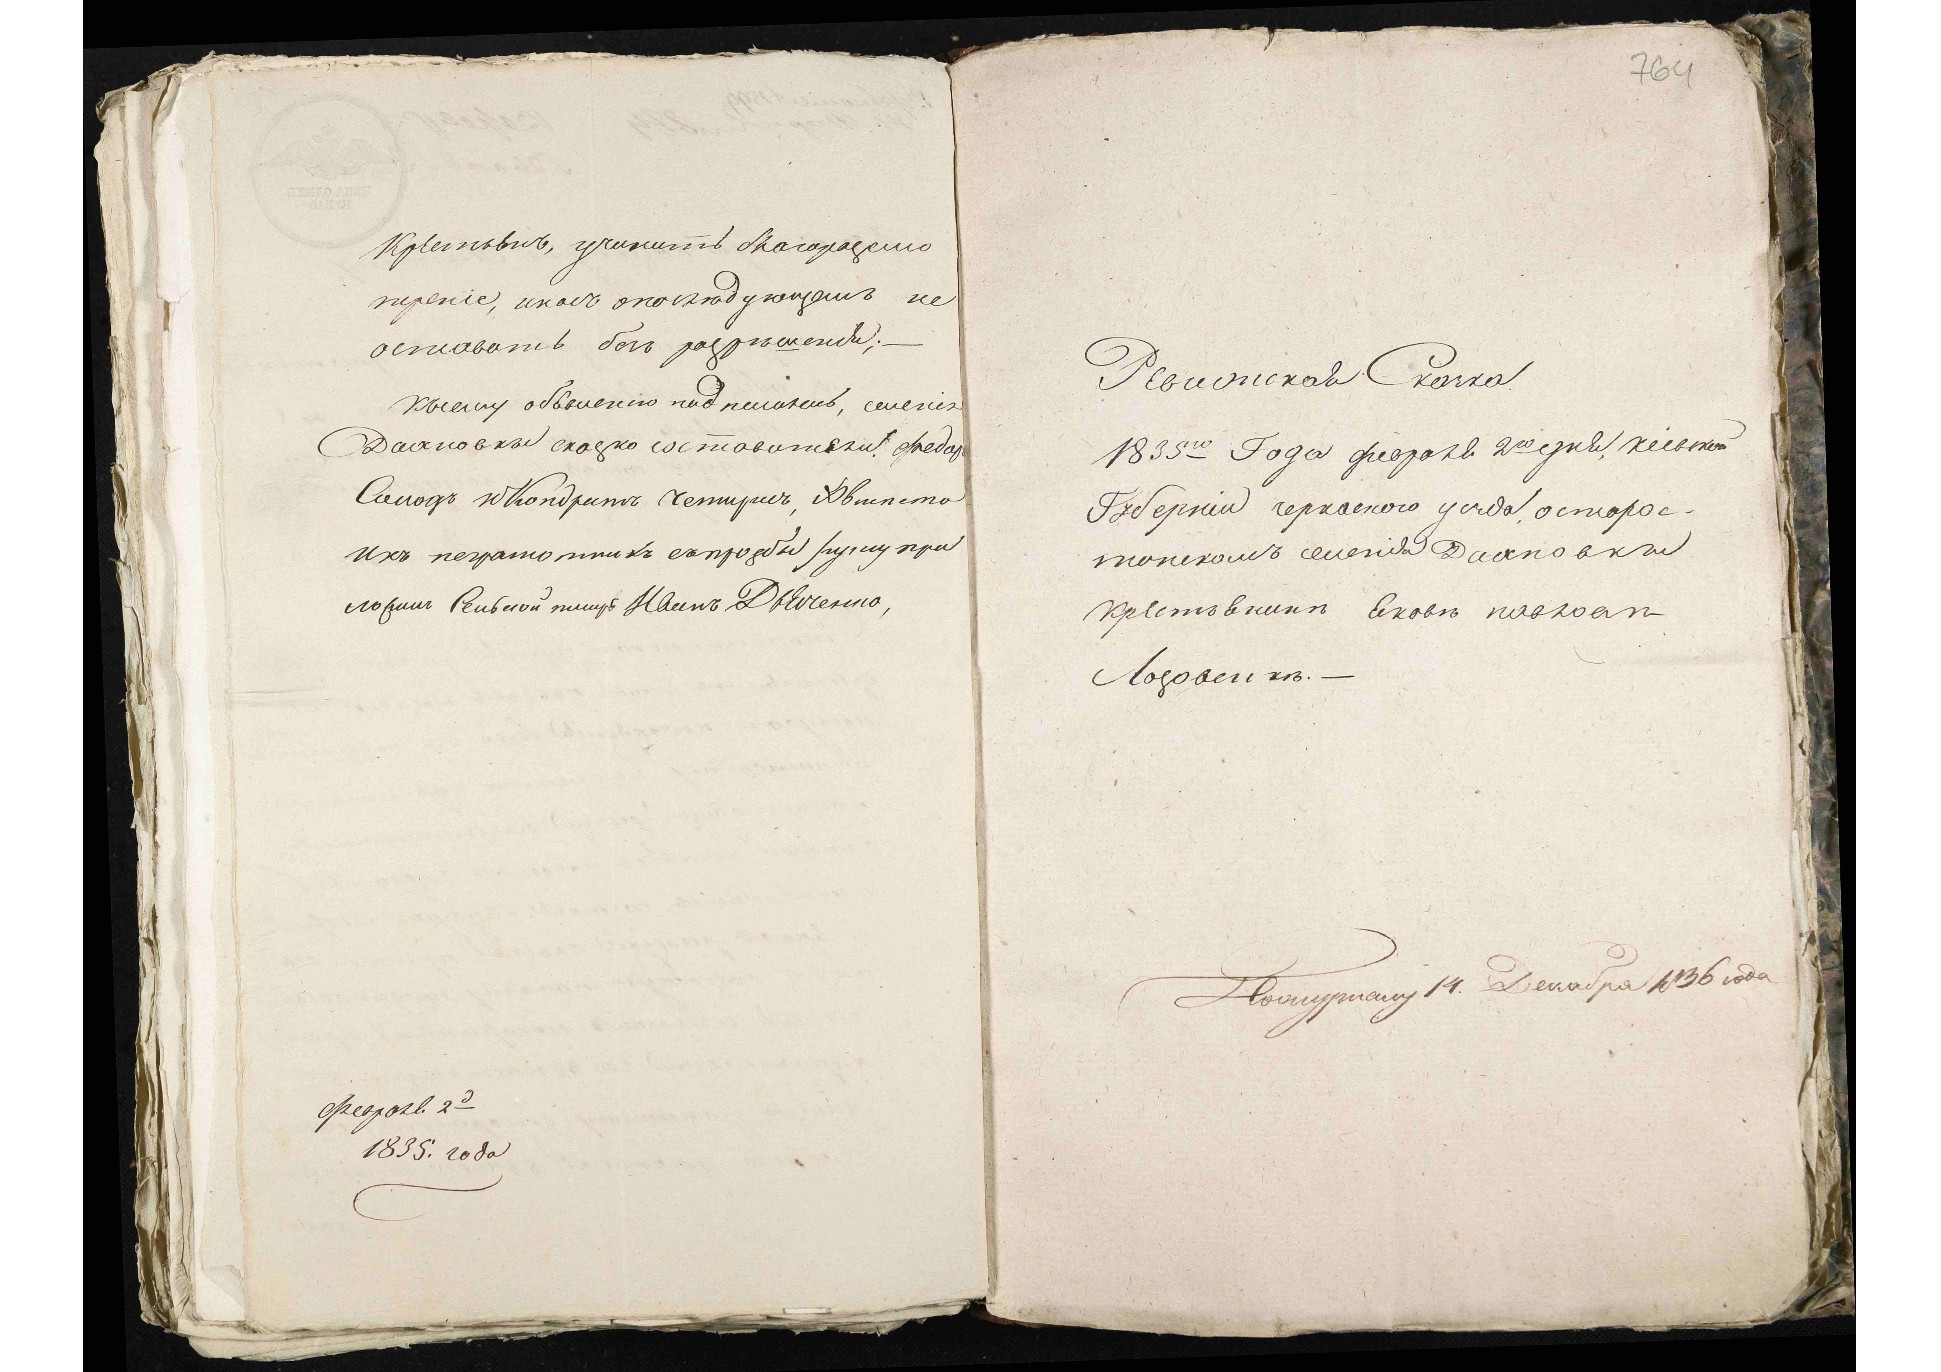 Крестьянъ, учинить благоразсмо
трение, и насъ о послѣдующемъ не
оставить безъ разрѣшенія;—
Къ сему объявленію подписались, селенія
Дахновки сказко составители: Федоръ
Солодъ и Кондратъ Чемирисъ, а вместо
ихъ неграмотныхъ с прозбы руку при
ложилъ Сельской писарь Иванъ Дяченко,
Февраля 2д
1835. года
764
Ревизская Сказка
1835го Года февраля 2го дня, Кіевской
Губерніи Черкаского уезда, о старос-
тинскомъ селеніи Дахновки
Крестьянинъ Яковъ Павловъ
Лозовенкъ.—
Поступило 14. Декабря 1836 года